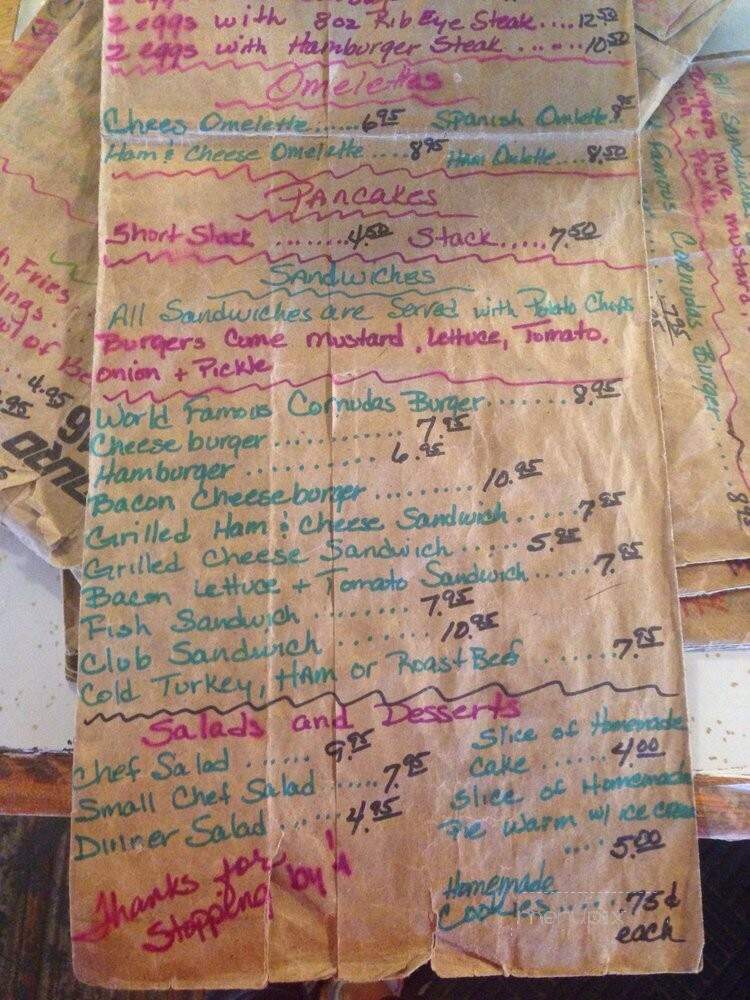 2 eggs with 8oz Rib Eye Steak....12.50
2 eggs with Hamburger Steak ......10.50
Omelettes
Chees Omelette......6.95 Spanish Omlette.
Ham & Cheese Omelette ....8.95 Ham Omlette....8.50
Pancakes
Short Stack ........4.50 Stack.....7.50
Sandwiches
All Sandwiches are Served with Potato Chips
Burgers Come mustard, lettuce, Tomato,
onion + Pickle
World Famous Cornudas Burger.......8.95
Cheeseburger ............. 7.95
Hamburger ............. 6.95
Bacon Cheeseburger ......... 10.95
Grilled Ham & Cheese Sandwich......7.95
Grilled Cheese Sandwich ...... 5.95
Bacon Lettuce + Tomato Sandwich......7.95
Fish Sandwich ........ 7.95
Club Sandwich ........ 10.95
Cold Turkey, Ham or Roast Beef ......7.95
Salads and Desserts
Chef Salad ...... 9.95
Small Chef Salad .....7.95
Dinner Salad ......4.95
Slice of Homemade
Cake ......4.00
Slice of Homemade
Pie Warm w/ ice cream
.... 5.00
Homemade
Cookies.....75¢
each
Thanks for
Stopping by!
Fries
4.95
.95
All Sandw
Burgers have mustard
+ Pickle
Famous Cornudas Burger
7.95